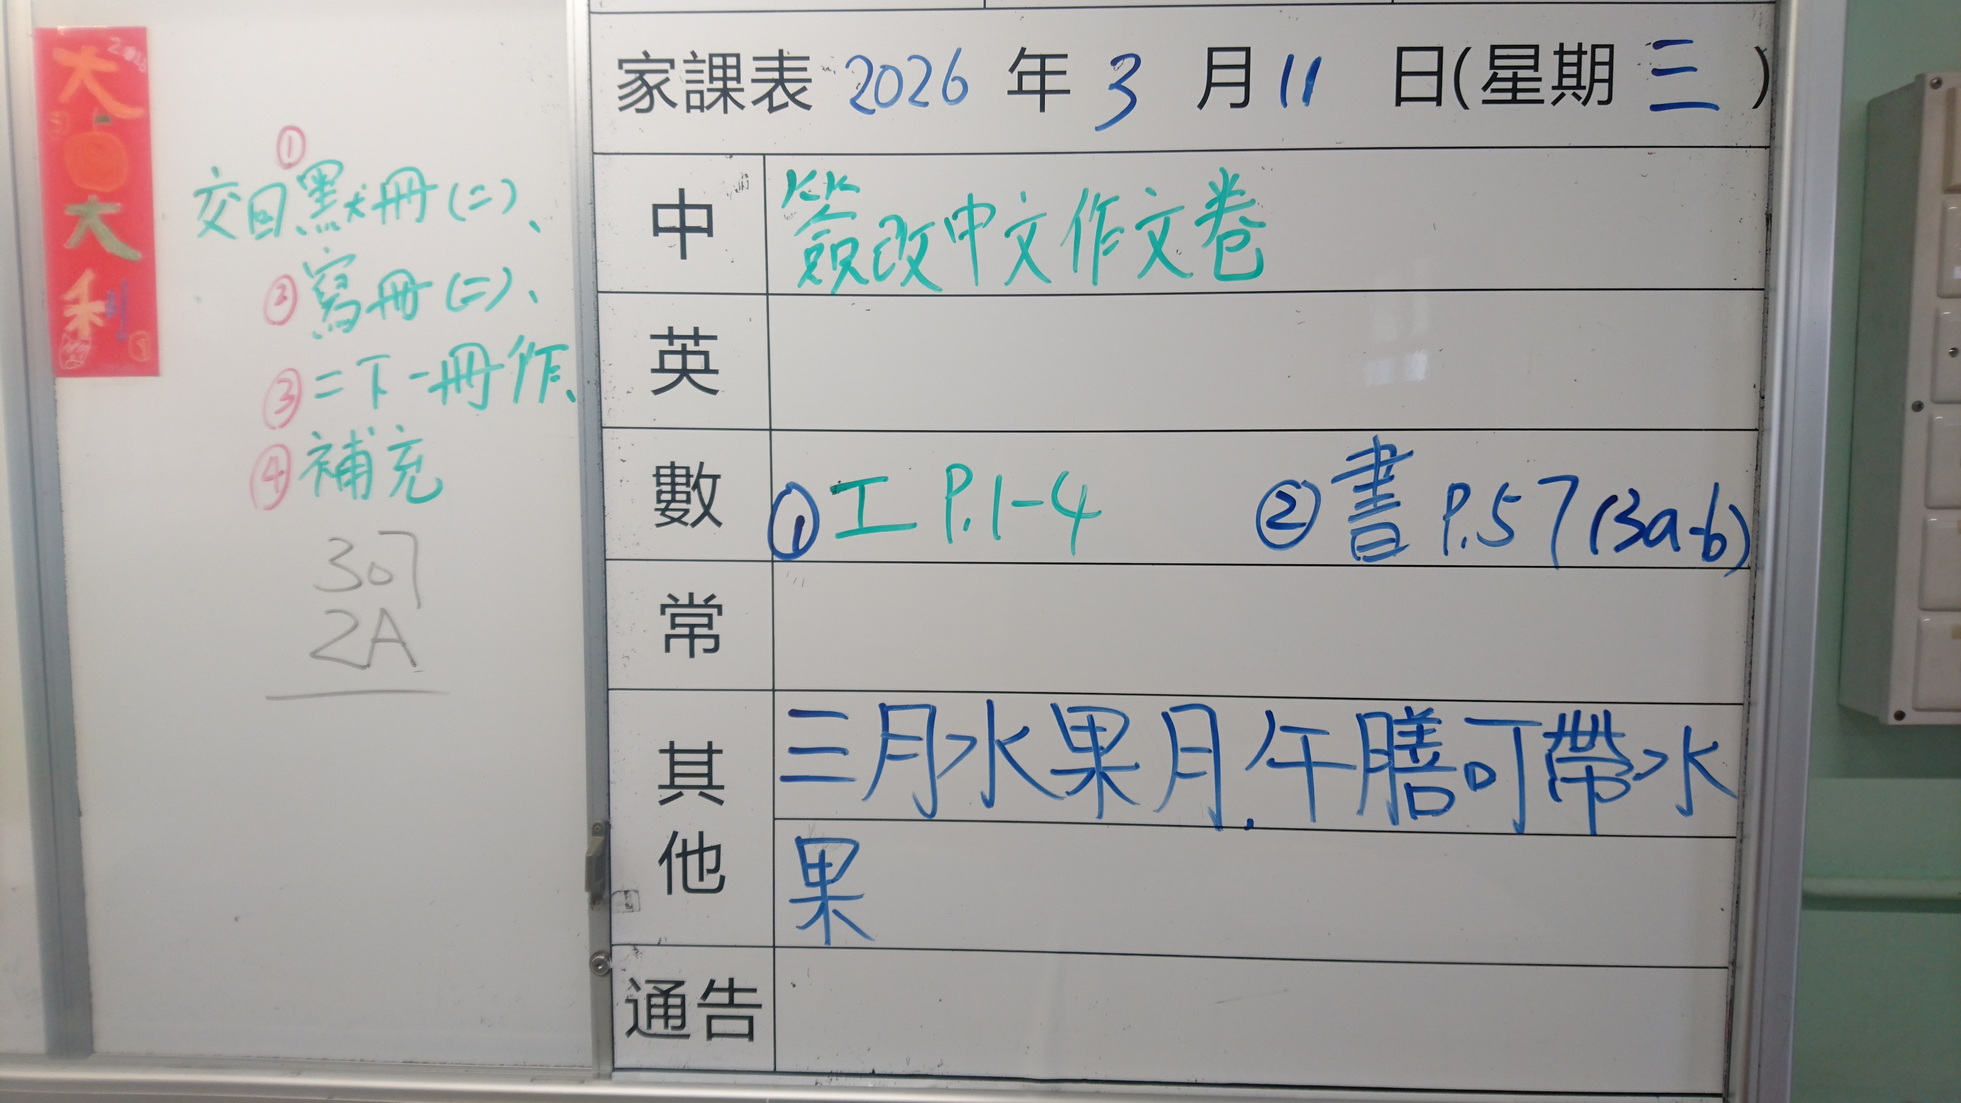 大吉大利
①
交回默冊(二)、
②寫冊(二)、
③二下一冊作、
④補充
307
2A
家課表 2026 年 3 月 11 日(星期三)
中 簽改中文作文卷
英
數 ①工 P.1-4 ②書 P.57(3a-b)
常
其他 三月水果月,午膳可帶水
果
通告